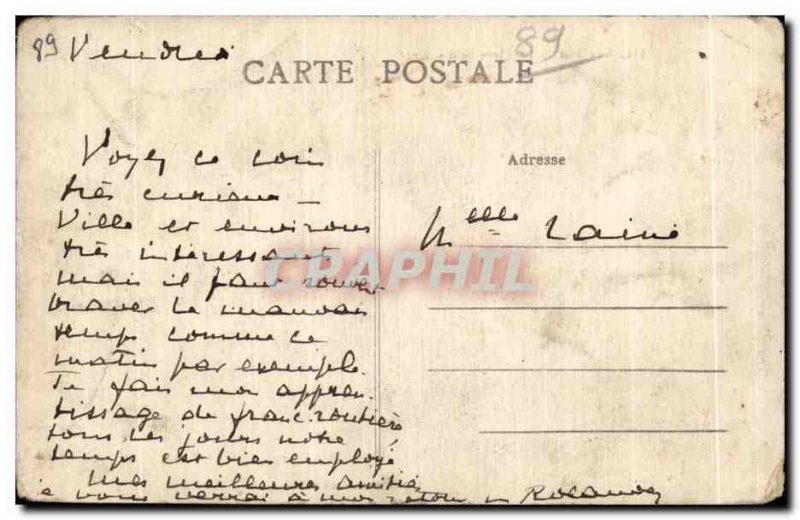 89 Vendredi
89
CARTE POSTALE
Voyez ce coin
très curieux —
Ville et environs
très intéressants
mais il faut souvent
braver le mauvais
temps comme ce
matin par exemple.
Je fais mon appren-
tissage de franc-routière
tous les jours notre
temps est bien employé
mes meilleures amitiés
je vous verrai à mon retour
Adresse
Melle Lainé
CRAPHIL